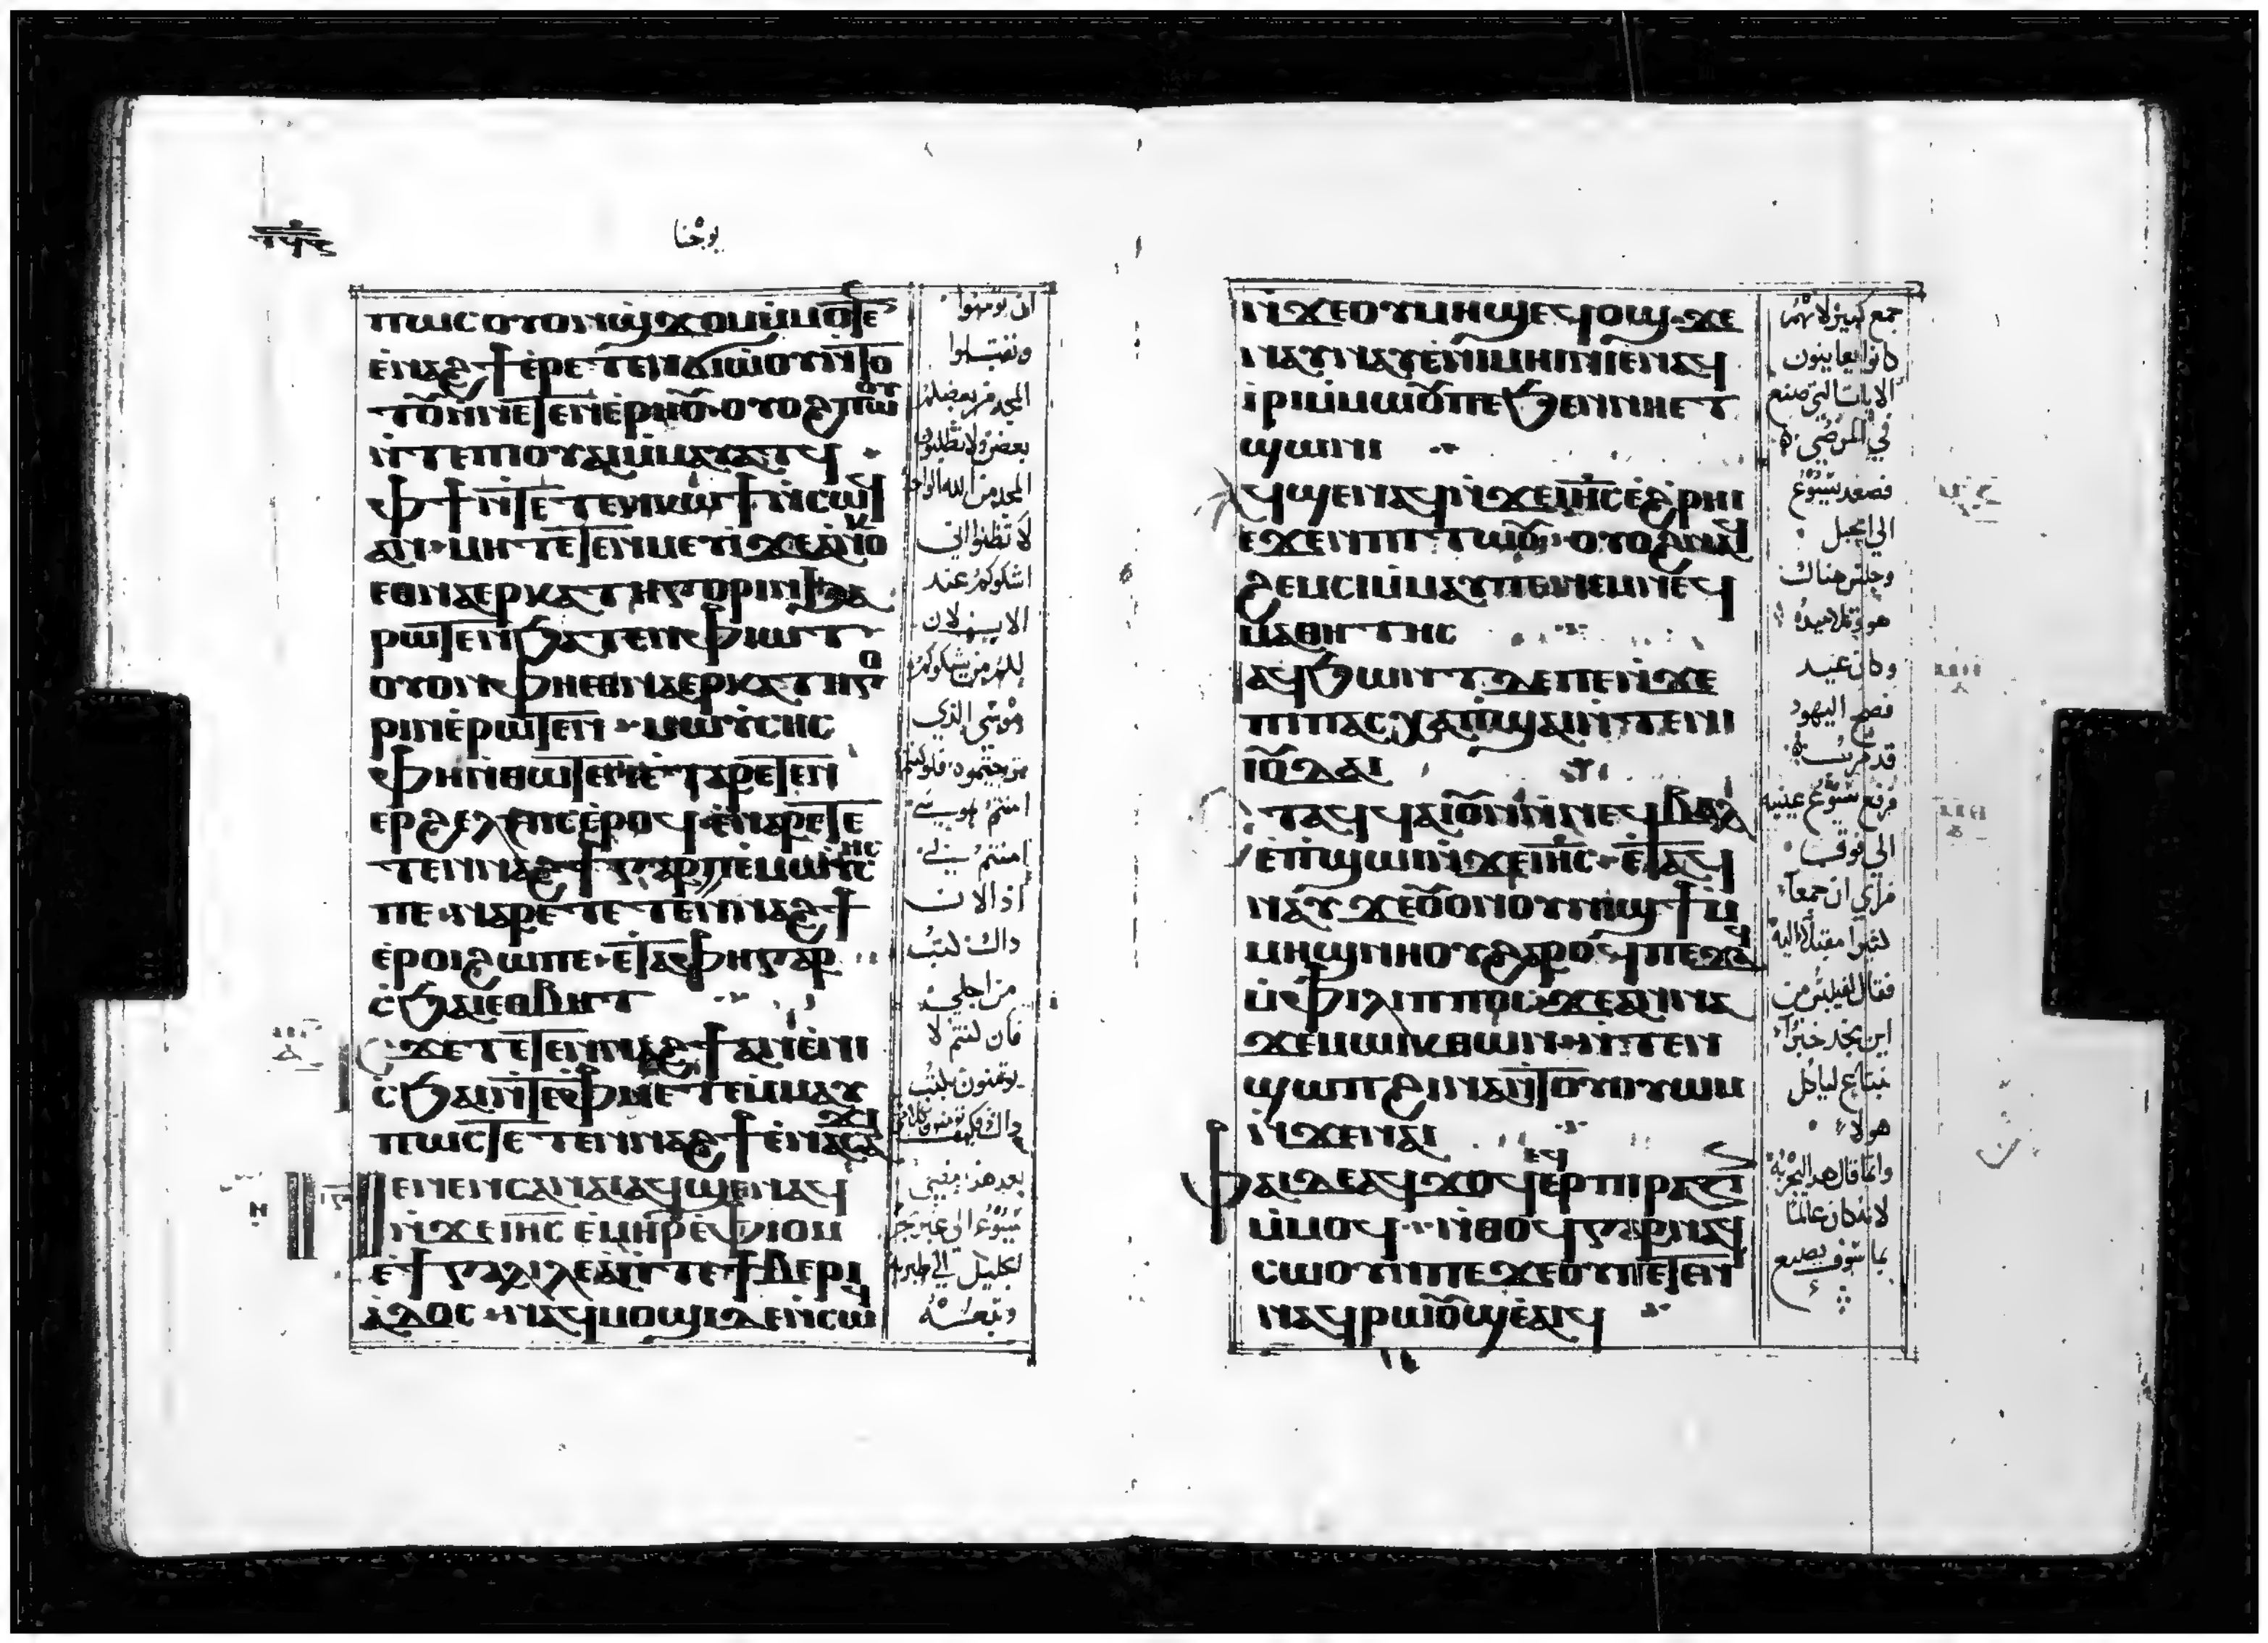 يوحنا
ⲡⲱⲥ ⲟⲩⲟⲛ ϣϫⲟⲙ ⲙ̇ⲙⲟⲧⲉ
ⲉ̇ⲛⲁϩϯ ⲉ̇ⲣⲉⲧⲉⲛϭⲓⲱ̇ⲟⲩ ⲛ̇ⲧⲟ
ⲧⲟⲩ ⲛ̇ⲛⲉⲧⲉⲛⲉ̇ⲣⲏⲟⲩ· ⲟⲩⲟϩ ⲡⲱⲟⲩ
ⲛ̇ⲧⲉ ⲡⲓⲟⲩⲁⲓ ⲙ̇ⲙⲁⲩⲁⲧϥ
ⲫϯ ⲛ̇ⲧⲉⲧⲉⲛⲕⲱϯ ⲛ̇ⲥⲱϥ
ⲁⲛ· ⲙⲏ ⲧⲉⲧⲉⲛⲙⲉⲩⲓ ϫⲉ ⲁⲛⲟⲕ
ⲉⲑⲛⲁⲉⲣⲕⲁⲧⲏⲅⲟⲣⲓⲛ ϧⲁ
ⲣⲱⲧⲉⲛ ϧⲁⲧⲉⲛ ⲫⲓⲱⲧ
ⲟⲩⲟⲛ ⲫⲏ ⲉⲑⲛⲁⲉⲣⲕⲁⲧⲏⲅⲟ
ⲣⲓⲛ ⲉ̇ⲣⲱⲧⲉⲛ· ⲙⲱⲩ̇ⲥⲏⲥ
ⲫⲏ ⲛ̇ⲑⲱⲧⲉⲛ ⲉ̇ⲧⲁⲣⲉⲧⲉⲛ
ⲉⲣϩⲉⲗⲡⲓⲥ ⲉ̇ⲣⲟϥ· ⲉ̇ⲛⲁⲣⲉⲧⲉ
ⲧⲉⲛⲛⲁϩϯ ⲅⲁⲣ ⲡⲉ ⲙ̇ⲙⲱⲩ̇ⲥⲏⲥ
ⲡⲉ· ⲛⲁⲣⲉⲧⲉⲧⲉⲛⲛⲁϩϯ
ⲉ̇ⲣⲟⲓ ϩⲱ ⲡⲉ· ⲉⲧⲁ ⲫⲏ ⲅⲁⲣ
ⲥ̇ϧⲁⲓ ⲉⲑⲃⲏⲧ
ϫⲉ ⲧⲉⲧⲉⲛⲛⲁϩϯ ⲁⲛ ⲉ̇ⲛⲓ
ⲥ̇ϧⲁⲓ ⲛ̇ⲧⲉ ⲫⲏ ⲉⲧⲉⲙ̇ⲙⲁⲩ
ⲡⲱⲥ ⲧⲉⲧⲉⲛⲛⲁϩϯ ⲉ̇ⲛⲁⲥⲁϫⲓ
ⲙⲉⲛⲉⲛⲥⲁ ⲛⲁⲓ ⲁϥϣⲉⲛⲁϥ
ⲛ̇ϫⲉ ⲓⲏⲥ ⲉⲙⲏⲣ ⲉ̇ⲫⲓⲟⲙ
ⲉ̇ϯⲅⲁⲗⲓⲗⲉⲁ ⲛ̇ⲧⲉ ϯⲃⲉⲣⲓ
ⲁ̇ⲇⲟⲥ· ⲛⲁϥⲙⲟϣⲓ ⲇⲉ ⲛ̇ⲥⲱϥ
ان تومنوا
وتقبلوا
المجد من بعضكم
بعض ولا تطلبون
المجد من الله الواحد
لا تظنوا اني
اشكوكم عند
الاب لان
لكم من يشكوكم
موسى الذي
ترجيتموه فلو كنتم
امنتم بموسى
امنتم بي
اذ الان
ذاك كتب
من اجلي
فان كنتم لا
تومنون بكتب
ذاك فكيف تومنون بكلامي
بعد هذا مضى
يسوع الى عبر بحر
الجليل الى طبرية
وتبعه
ⲛ̇ϫⲉ ⲟⲩⲙⲏϣ ⲉϥⲟϣ· ϫⲉ
ⲛⲁⲩⲛⲁⲩ ⲉ̇ⲛⲓⲙⲏⲓⲛⲓ ⲉ̇ⲛⲁϥ
ⲓ̇ⲣⲓ ⲙ̇ⲙⲱⲟⲩ ⲡⲉ ϧⲉⲛ ⲛⲏⲉⲧ
ϣⲱⲛⲓ
ⲁϥϣⲉⲛⲁϥ ⲛ̇ϫⲉ ⲓⲏⲥ ⲉ̇ϩⲣⲏⲓ
ⲉϫⲉⲛ ⲡⲓⲧⲱⲟⲩ· ⲟⲩⲟϩ ⲛⲁϥ
ϩⲉⲙⲥⲓ ⲙ̇ⲙⲁⲩ ⲡⲉ ⲛⲉⲙ ⲛⲉϥ
ⲙⲁⲑⲏⲧⲏⲥ
ⲛⲁϥϧⲱⲛⲧ ⲇⲉ ⲡⲉ ⲛ̇ϫⲉ
ⲡⲓⲡⲁⲥⲭⲁ ⲡ̇ϣⲁⲓ ⲛ̇ⲧⲉ ⲛⲓ
ⲓⲟⲩⲇⲁⲓ
ⲉⲧⲁϥϥⲁⲓ ⲟⲩⲛ ⲛ̇ⲛⲉϥⲃⲁⲗ
ⲉ̇ⲡϣⲱⲓ ⲛ̇ϫⲉ ⲓⲏⲥ· ⲉⲧⲁϥ
ⲛⲁⲩ ϫⲉ ⲟⲩⲟⲛ ⲟⲩⲛⲓϣϯ ⲙ̇
ⲙⲏϣ ⲛⲏⲟⲩ ϩⲁⲣⲟϥ ⲡⲉϫⲁϥ
ⲙ̇ⲫⲓⲗⲓⲡⲡⲟⲥ· ϫⲉ ⲁⲛⲛⲁ
ϫⲉⲙ ⲱⲓⲕ ⲑⲱⲛ· ⲛ̇ⲧⲉⲛ
ϣⲱⲡ ϩⲓⲛⲁ ⲛ̇ⲧⲟⲩⲟⲩⲱⲙ
ⲛ̇ϫⲉ ⲛⲁⲓ
ⲫⲁⲓ ⲇⲉ ⲁϥϫⲟϥ ⲉϥⲉⲣⲡⲓⲣⲁⲍⲓⲛ
ⲙ̇ⲙⲟϥ· ⲛ̇ⲑⲟϥ ⲅⲁⲣ ⲛⲁϥ
ⲥⲱⲟⲩⲛ ⲡⲉ ϫⲉ ⲟⲩ ⲡⲉⲧⲉ
ⲛⲁϥⲣⲱⲟⲩϣ ⲉ̇ⲁⲓϥ
جمع كبير لانهم
كانوا يعاينون
الايات التي صنع
في المرضى
فصعد يسوع
الى الجبل
وجلس هناك
هو وتلاميذه
وكان عيد
فصح اليهود
قد قرب
فرفع يسوع عينيه
الى فوق
فراى ان جمعا
كثيرا مقبلا اليه
فقال لفيلبس من
اين نجد خبزا
نبتاع لياكل
هولاء
وانما قال هذا ليجربه
لانه كان عالما
بما سوف يصنع